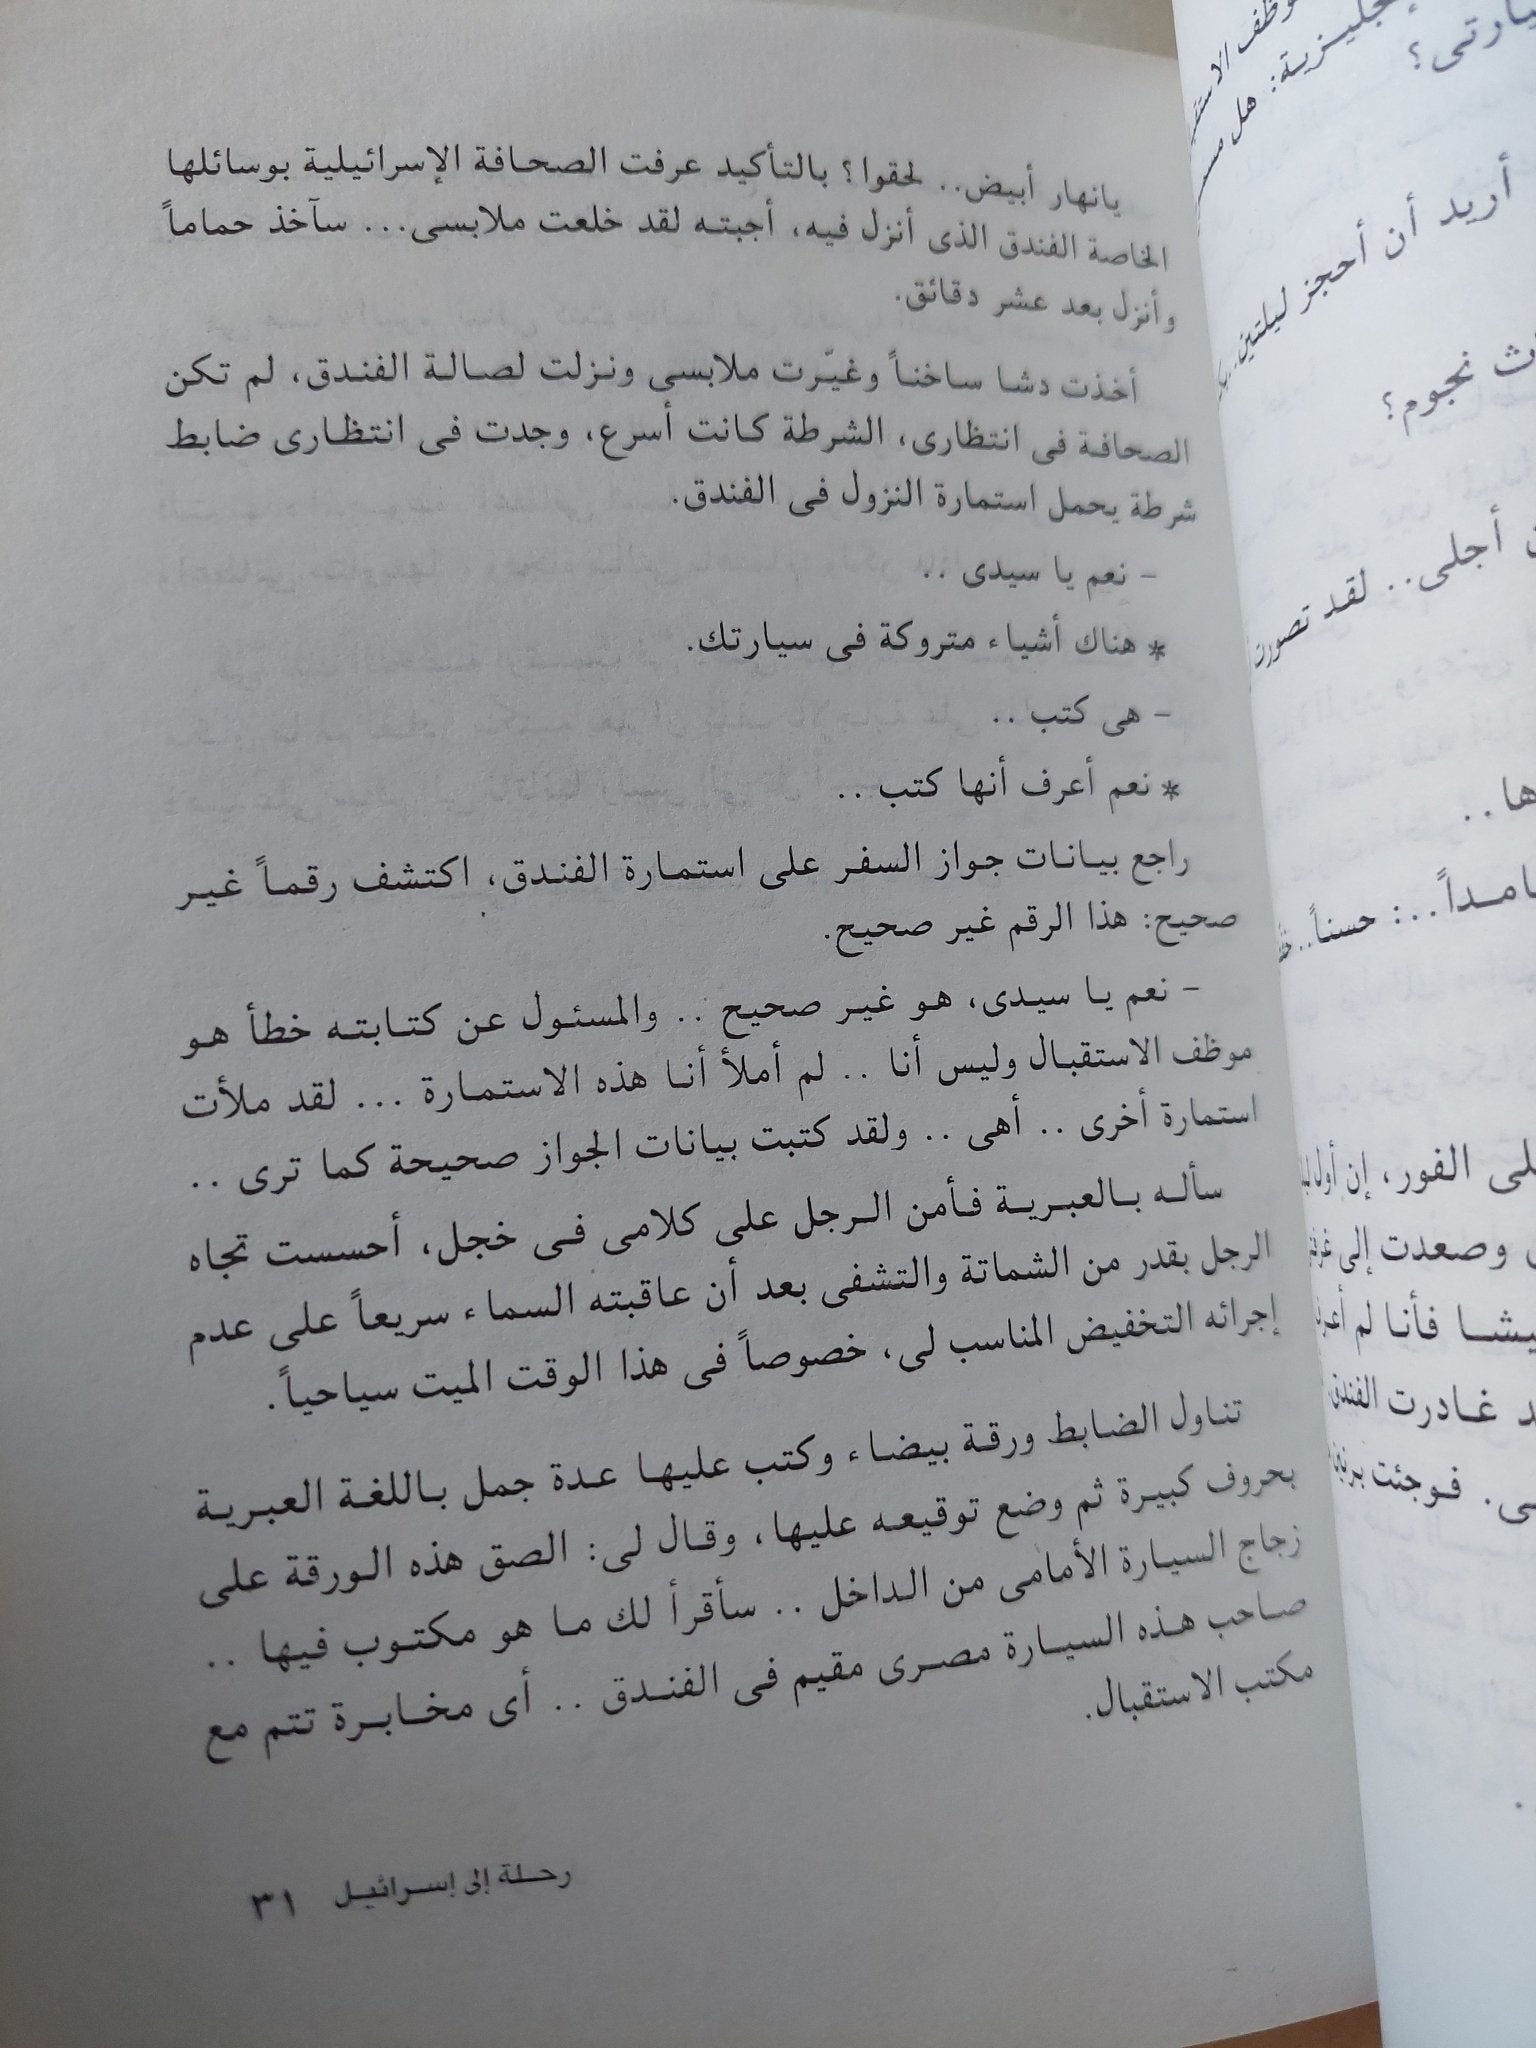 يانهار أبيض.. لحقوا؟ بالتأكيد عرفت الصحافة الإسرائيلية بوسائلها
الخاصة الفندق الذى أنزل فيه، أجبته لقد خلعت ملابسى... سآخذ حماماً
وأنزل بعد عشر دقائق.
أخذت دشا ساخناً وغيّرت ملابسى ونزلت لصالة الفندق، لم تكن
الصحافة فى انتظارى، الشرطة كانت أسرع، وجدت فى انتظارى ضابط
شرطة يحمل استمارة النزول فى الفندق.
- نعم يا سيدى ..
* هناك أشياء متروكة فى سيارتك.
- هى كتب ..
* نعم أعرف أنها كتب ..
راجع بيانات جواز السفر على استمارة الفندق، اكتشف رقماً غير
صحيح: هذا الرقم غير صحيح.
- نعم يا سيدى، هو غير صحيح .. والمسئول عن كتابته خطأ هو
موظف الاستقبال وليس أنا .. لم أملأ أنا هذه الاستمارة ... لقد ملأت
استمارة أخرى .. أهى .. ولقد كتبت بيانات الجواز صحيحة كما ترى ..
سأله بالعبرية فأمن الرجل على كلامى فى خجل، أحسست تجاه
الرجل بقدر من الشماتة والتشفى بعد أن عاقبته السماء سريعاً على عدم
إجرائه التخفيض المناسب لى، خصوصاً فى هذا الوقت الميت سياحياً.
تناول الضابط ورقة بيضاء وكتب عليها عدة جمل باللغة العبرية
بحروف كبيرة ثم وضع توقيعه عليها، وقال لى: الصق هذه الورقة على
زجاج السيارة الأمامى من الداخل .. سأقرأ لك ما هو مكتوب فيها ..
صاحب هذه السيارة مصرى مقيم فى الفندق .. أى مخابرة تتم مع
مكتب الاستقبال.
رحلة إلى إسرائيل ٣١
إنجليزية: هل
أريد أن أحجز ليلتين..
نجوم؟
أجلى.. لقد تصورت
حسناً..
الفور، إن أول
وصعدت إلى
فأنا لم
غادرت الفندق
فوجئت